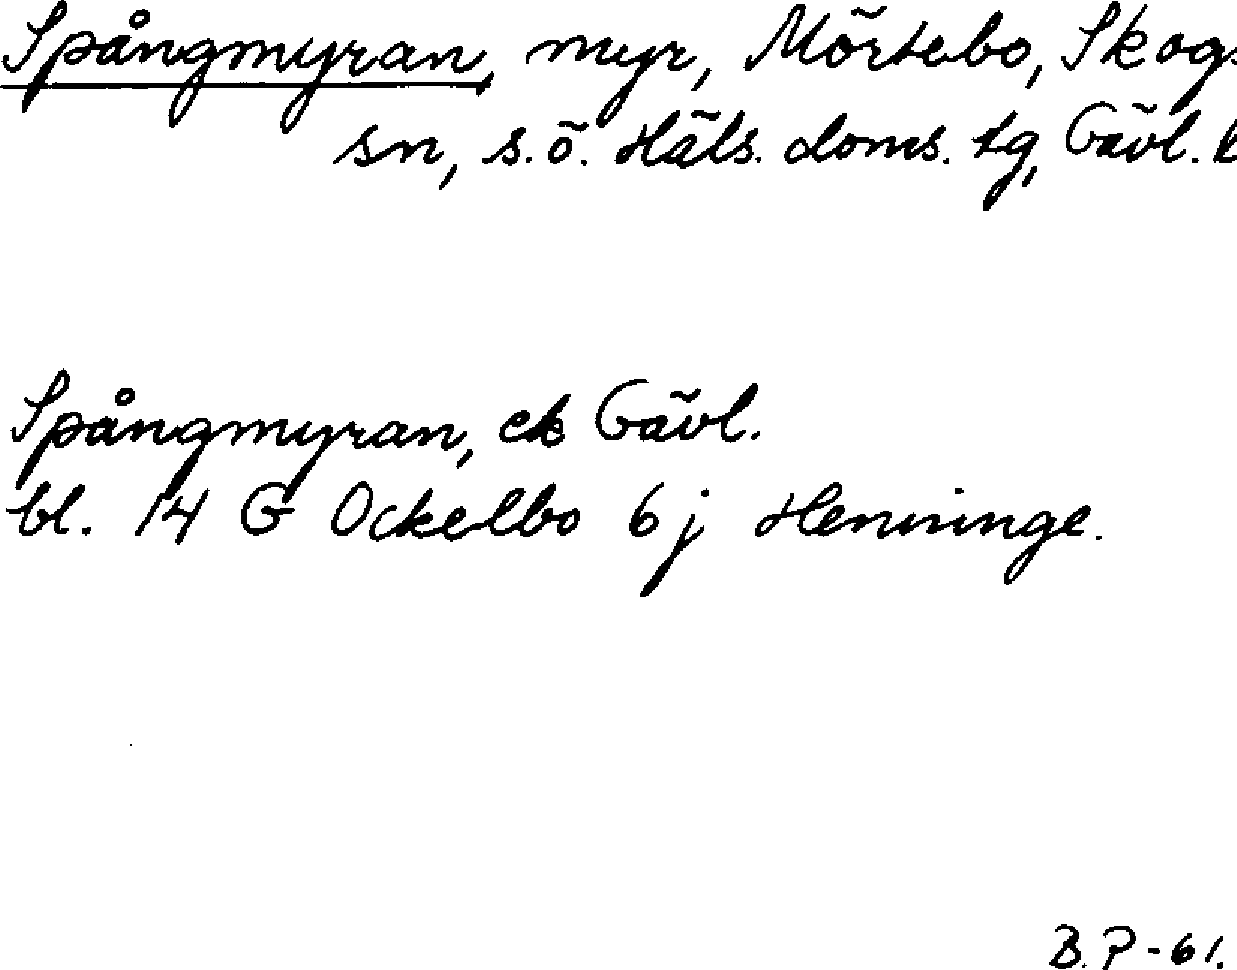 Spångmyran, myr, Mörtebo, Skogs
sn, s.ö. Häls. doms. tg, Gävl. l
Spångmyran, ek Gävl.
bl. 14 G Ockelbo 6j Henninge.
B.P-61.